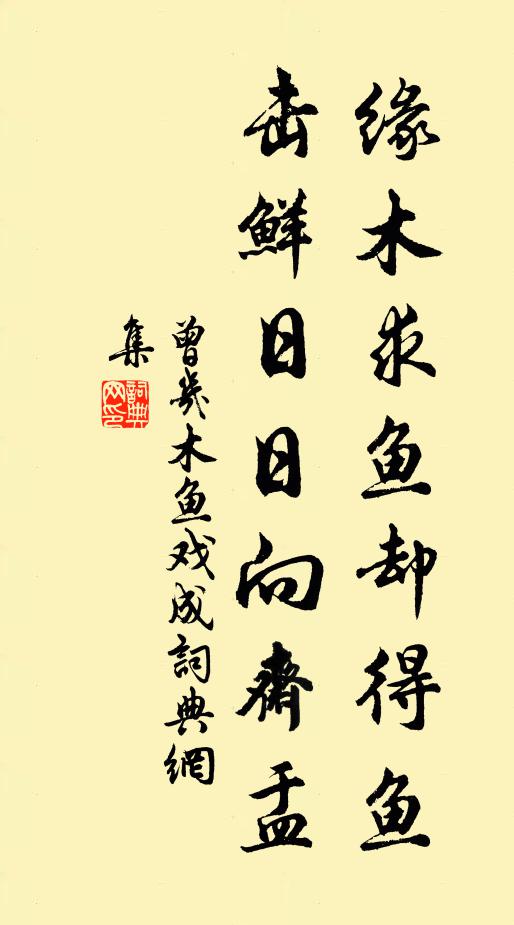 缘木求鱼却得鱼
击鲜日日向齋盂
曾幾木鱼戏成詞典網
集
詞典
网印